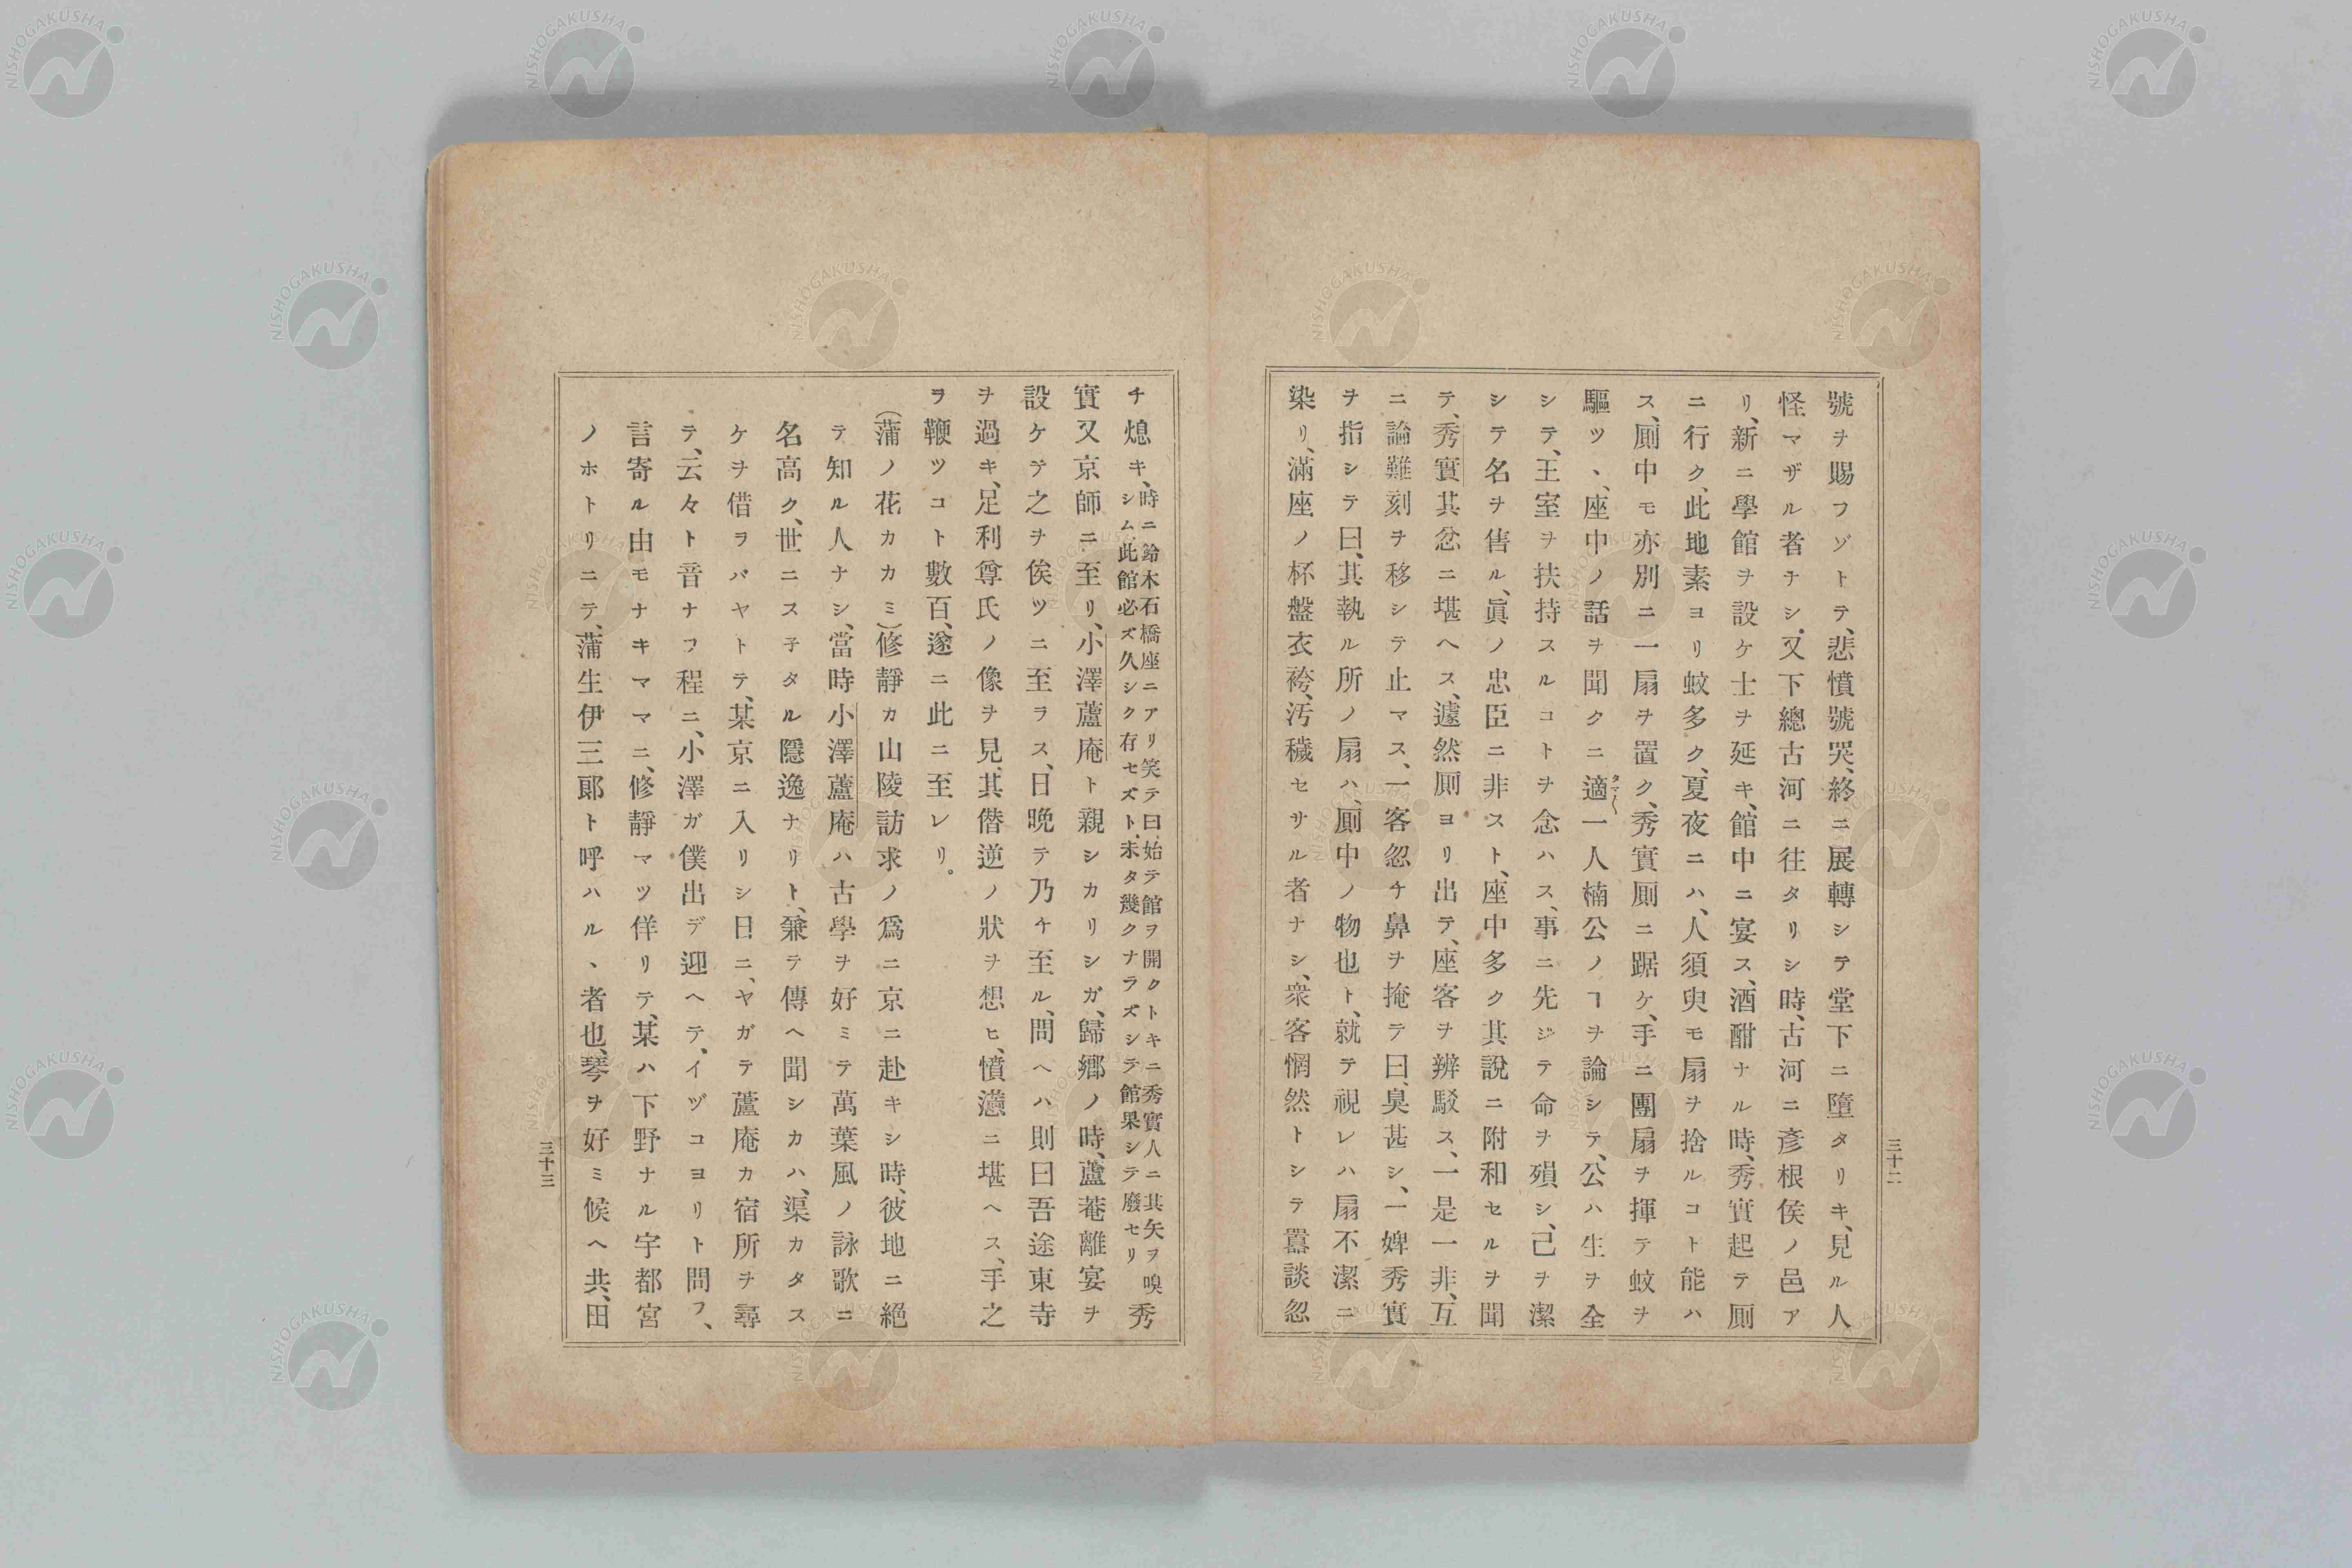 號ヲ賜フゾトテ、悲憤號哭、終ニ展轉シテ堂下ニ墮タリキ、見ル人
怪マザル者ナシ、又下總古河ニ往タリシ時、古河ニ彥根侯ノ邑ア
リ、新ニ學館ヲ設ケ士ヲ延キ、館中ニ宴ス、酒酣ナル時、秀實起テ厠
ニ行ク、此地素ヨリ蚊多ク、夏夜ニハ、人須臾モ扇ヲ捨ルコト能ハ
ス、厠中モ亦別ニ一扇ヲ置ク、秀實厠ニ踞ケ、手ニ團扇ヲ揮テ蚊ヲ
驅ツヽ、座中ノ話ヲ聞クニ適一人楠公ノヿヲ論シテ、公ハ生ヲ全
タマ〱
シテ、王室ヲ扶持スルコトヲ念ハス、事ニ先ジテ命ヲ殞シ、己ヲ潔
シテ名ヲ售ル、眞ノ忠臣ニ非スト、座中多ク其說ニ附和セルヲ聞
テ、秀實其忿ニ堪ヘス、遽然厠ヨリ出テ、座客ヲ辨駁ス、一是一非、互
ニ論難刻ヲ移シテ止マス、一客忽チ鼻ヲ掩テ曰、臭甚シ、一婢秀實
ヲ指シテ曰、其執ル所ノ扇ハ、厠中ノ物也ト、就テ視レハ扇不潔ニ
染リ、滿座ノ杯盤衣袴、汚穢セサル者ナシ、衆客惘然トシテ囂談忽
三十二
チ熄キ、時ニ鈴木石橋座ニアリ笑テ曰、始テ館ヲ開クトキニ秀實人ニ其矢ヲ嗅
シム、此館必ズ久シク存セズト、末タ幾クナラズシテ館果シテ廢セリ 秀
實又京師ニ至リ、小澤蘆庵ト親シカリシガ、歸鄉ノ時、蘆菴離宴ヲ
設ケテ之ヲ俟ツニ至ラス、日晚テ乃チ至ル、問ヘハ則曰吾途東寺
ヲ過キ、足利尊氏ノ像ヲ見、其僭逆ノ狀ヲ想ヒ、憤懣ニ堪ヘス、手之
ヲ鞭ツコト數百、遂ニ此ニ至レリ。
(蒲ノ花カカミ)修靜カ山陵訪求ノ爲ニ京ニ赴キシ時、彼地ニ絕
テ知ル人ナシ、當時小澤蘆庵ハ古學ヲ好ミテ萬葉風ノ詠歌ニ
名高ク、世ニス子タル隱逸ナリト、兼テ傳ヘ聞シカハ、渠カタス
ケヲ借ヲバヤトテ、某京ニ入リシ日ニ、ヤガテ蘆庵カ宿所ヲ尋
テ、云々ト音ナフ程ニ、小澤ガ僕出デ迎ヘテ、イヅコヨリト問フ、
言寄ル由モナキママニ、修靜マツ佯リテ、某ハ下野ナル宇都宮
ノホトリニテ、蒲生伊三郞ト呼ハルヽ者也、琴ヲ好ミ候ヘ共、田
三十三